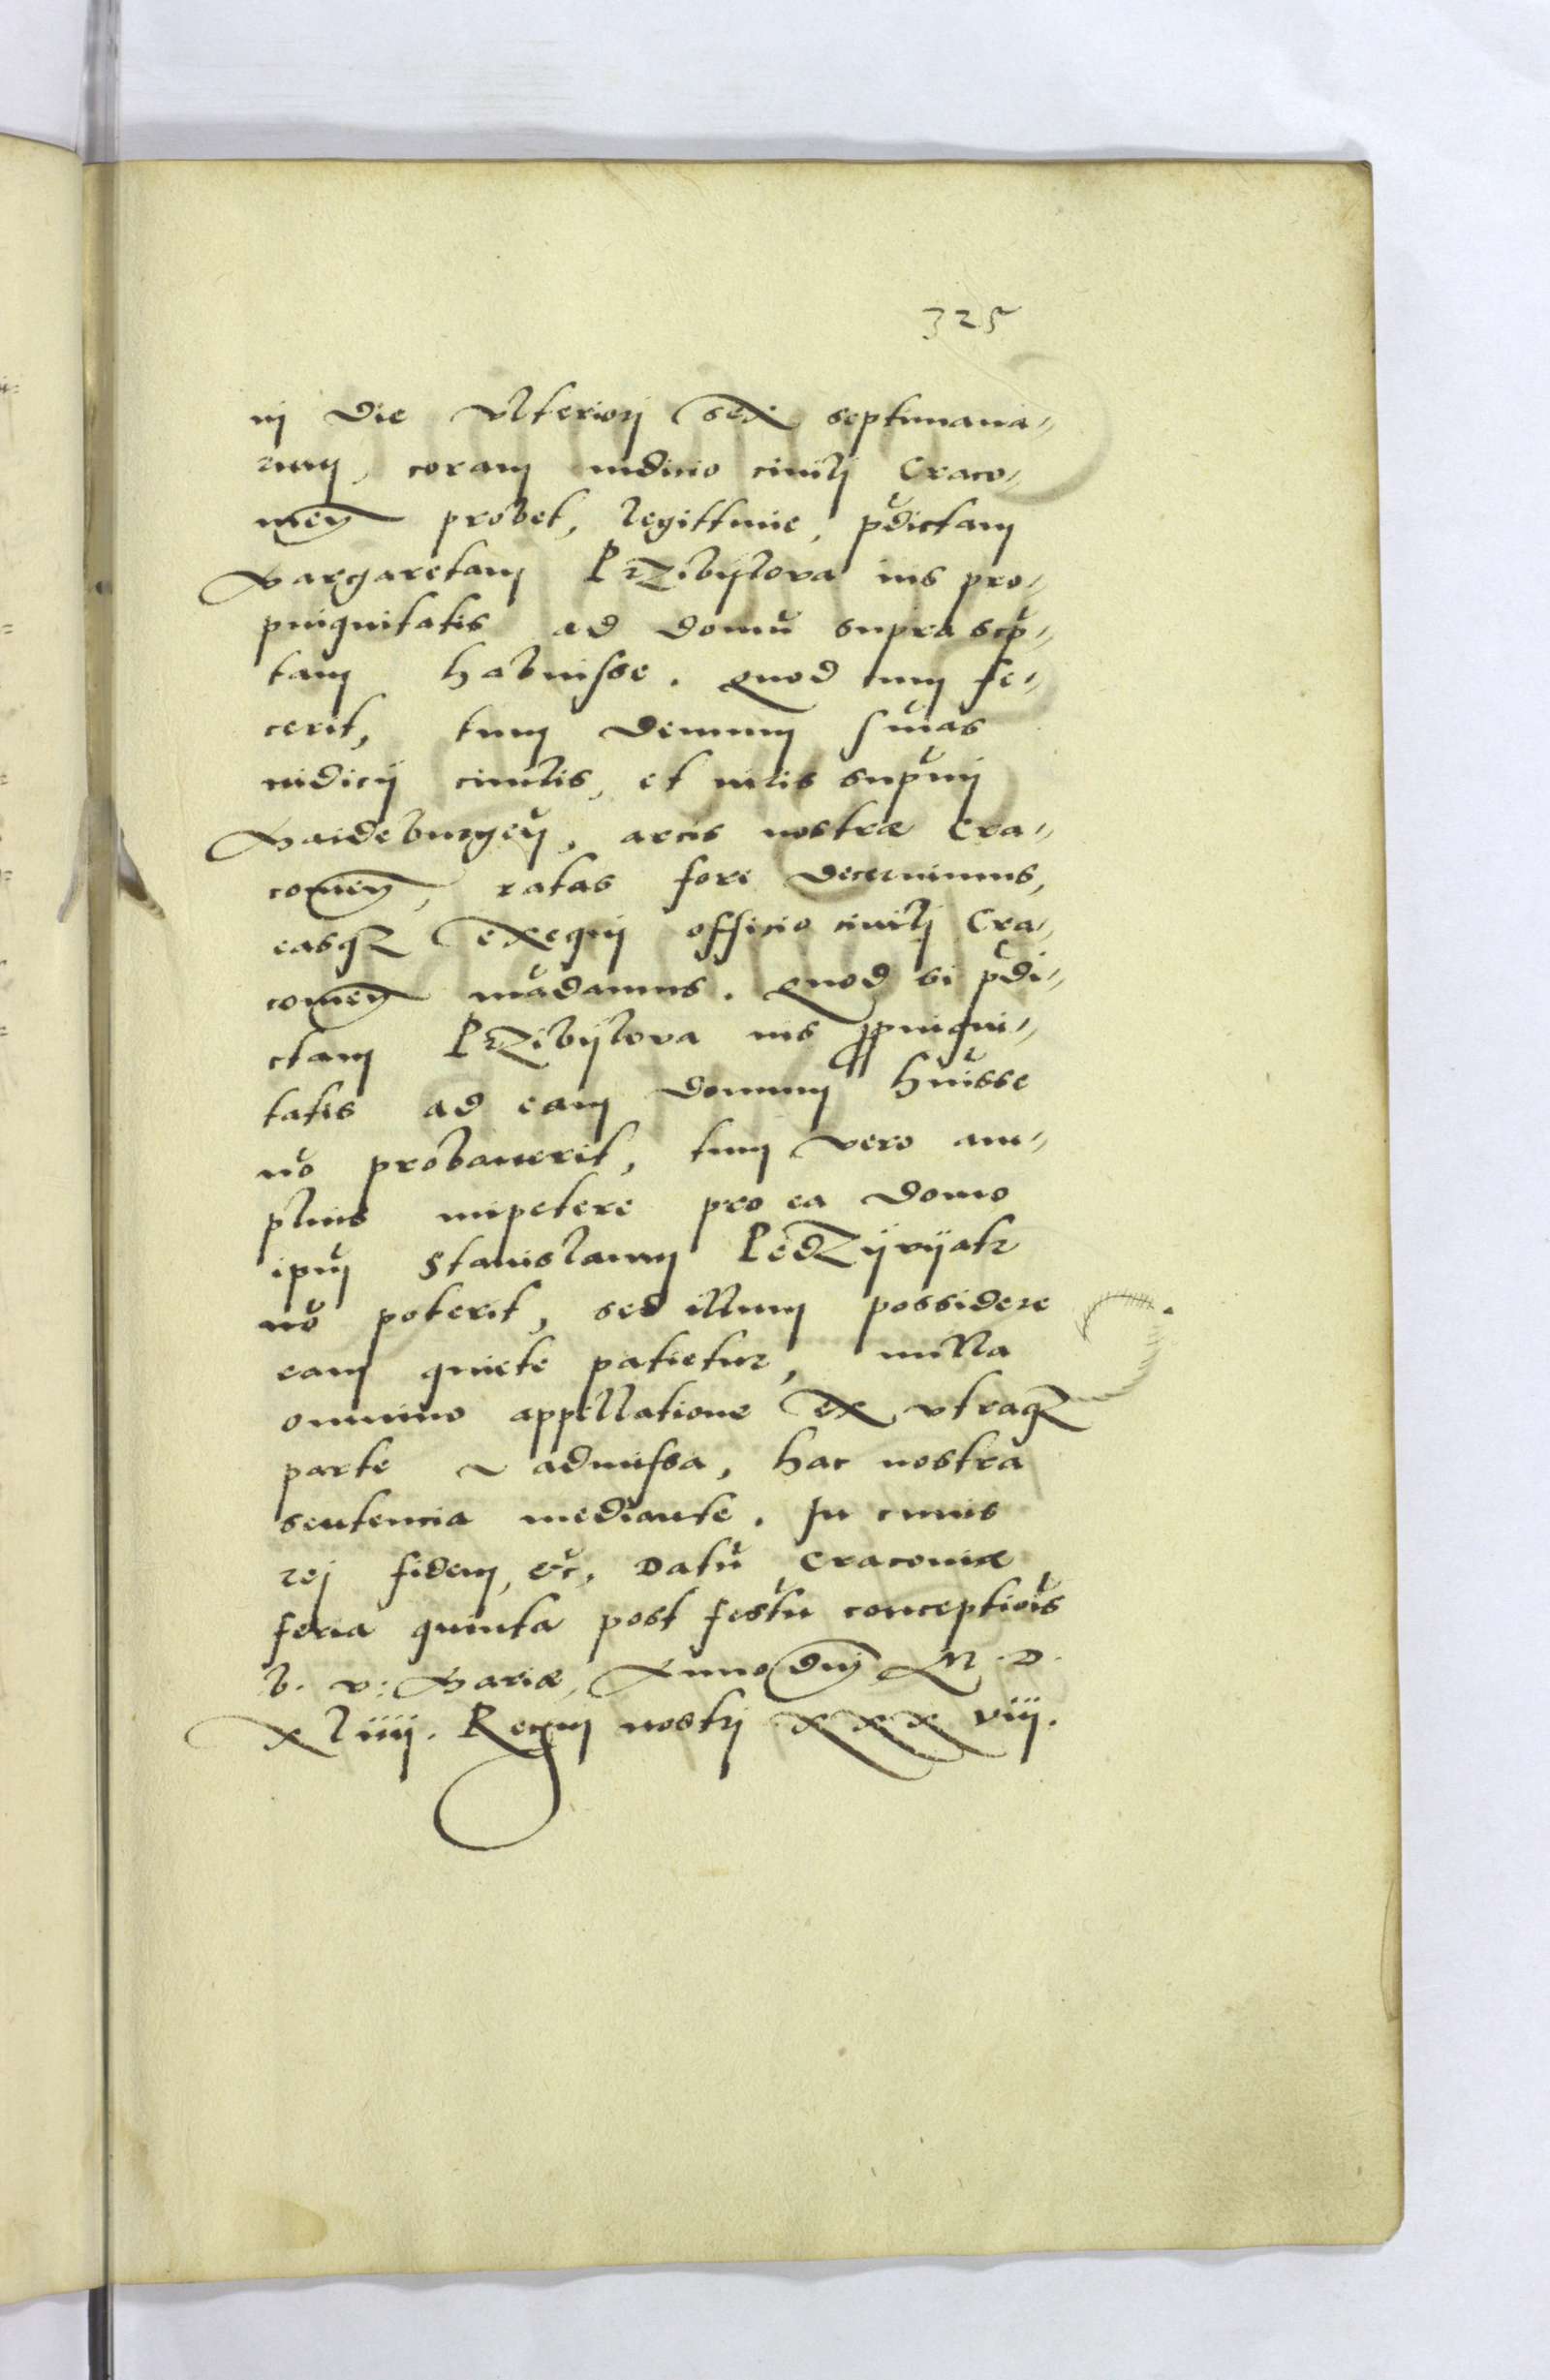 325
in die ulteriorj sex septimana„
rum, coram iudicio ciuilj Craco„
uien̄ probet, legittime, p̄dictam
Margaretam Przibijlova ius pro„
pinquitatis ad domū suprascp̄„
tam habuisse. Quod cum fe„
cerit, tum demum sn̄ias
iudicij ciuilis, et iuris sup̄mj
Maideburgen̄, arcis nostræ Cra„
couien̄, ratas fore decernimus,
easqȝ exequj officio ciuilj Cra„
couien̄ mādamus. Quod si p̄di„
ctam Przibijlova ius ꝓpinqui„
tatis ad eam domum hūisse
nō probauerit, tum vero am„
plius impetere pro ea domo
ip̄m Stanislaum Pedzijvijatr
nō poterit, sed illum possidere
eam quiete patietur, nulla
omnino appellatione ex utraqȝ
parte admissa, hac nostra
sentencia mediante. In cuius
rej fidem, &c̄, Datū Cracouiæ
feria quinta post festū conceptiōis
b. v: Mariæ, Anno dnj̄ M. D.
xliiij. Regnj nostrj xxxviij.